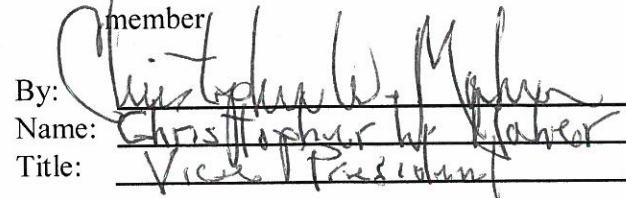 member
By: Christopher W.
Name: Christopher W.
Title: Vice President